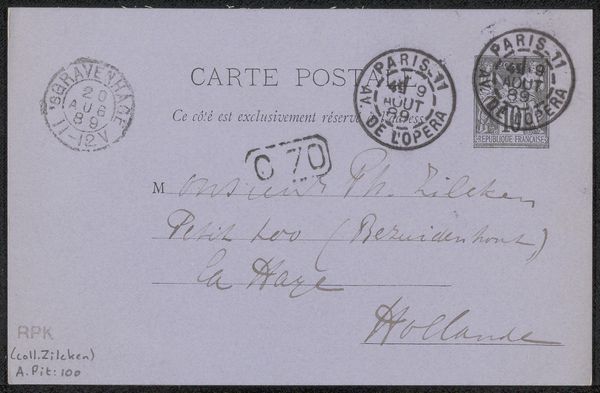 'SGRAVENHAGE
20
AUG
89
11-12V
CARTE POSTALE
Ce côté est exclusivement réservé à l'adresse
PARIS-11
9
AOUT
89
AV. DE L'OPERA
PARIS-11
9
AOUT
89
AV. DE L'OPERA
10
REPUBLIQUE FRANÇAISE
C 70
Monsieur Ph. Zilcken
Petit Loo (Bezuidenhout)
La Haye
Hollande
RPK
(coll. Zilcken)
A. Pit: 100